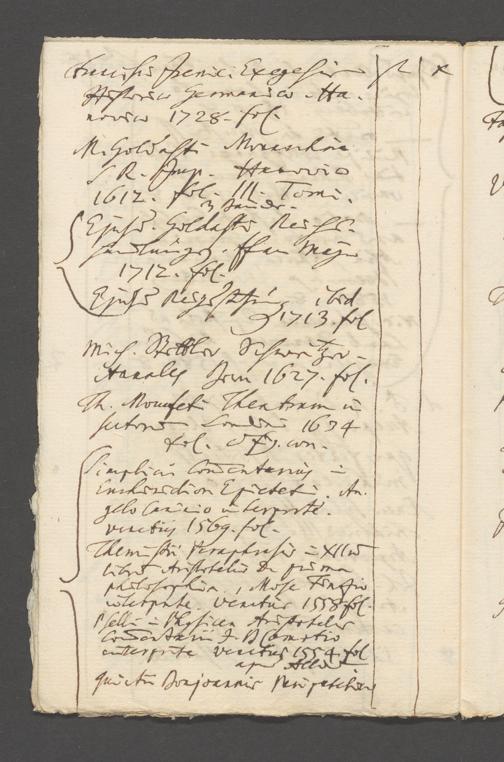 Francisci Irenici Exegesis
Historia Germanica. Ha-
novia 1728. fol.
M. Goldasti Monarchia
S. R. Imp. Hanovia
1612. fol. III. Tomi.
3 Bände.
Ejusd. Goldasti Reichs-
handlung. ffurt
1712. fol.
Ejusd. ibid
1713. fol
Mich. Stettler Schweitzer-
Annales Bern 1627. fol.
Th. Moufeti Theatrum in
sectorum Londini 1634
fol.
Simplicii Commentarius in
Enchiridion Epicteti. An-
gelo Caninio interprete.
venetiis 1569. fol.
Themistii Paraphrasis in XII
libros Aristotelis de prima
philosophia, Mose Finzio
interprete. venetiis 1558 fol.
Pselli in Physicen Aristotelis
Commentarii J. B. Camotio
interprete venetiis 1554. fol
apud Aldum
Bonjoannis